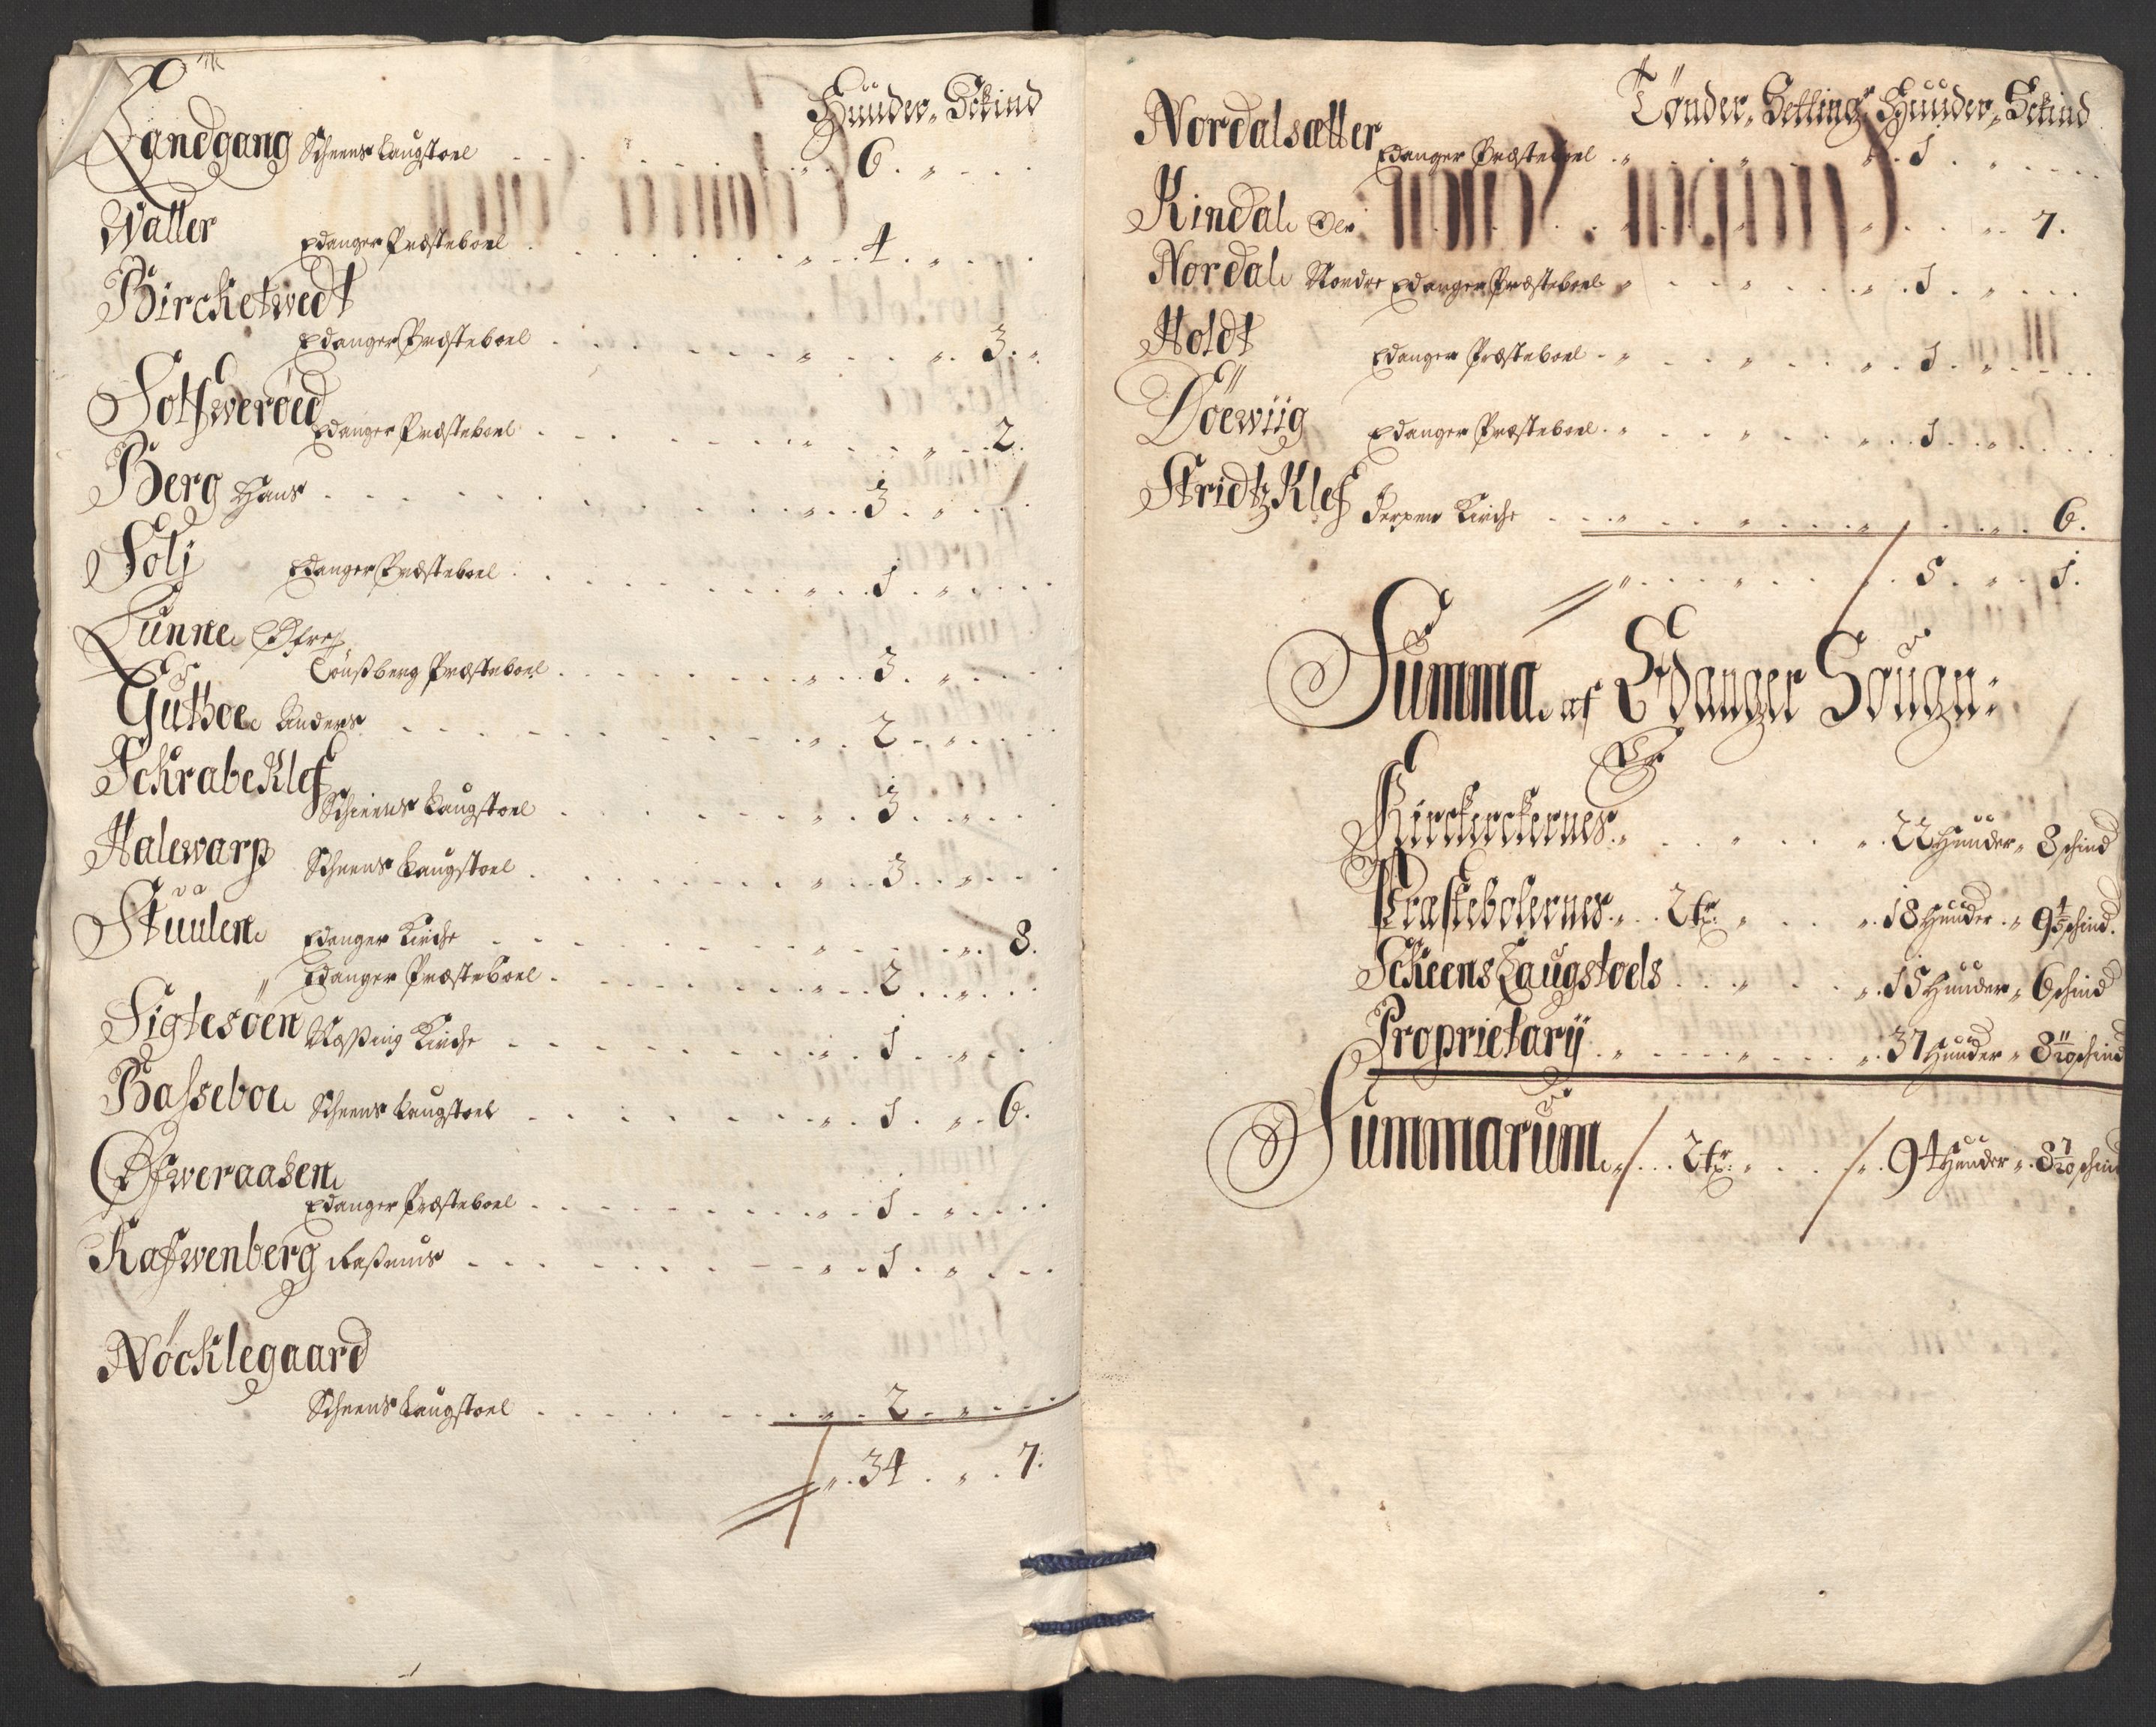 Huuder, Sckind
Landgang Scheens Laugstoel 6.
Waller
Edanger Præsteboel 4.
Bircketwedt
Edanger Præsteboel 3.
Solfweröed
Edanger Præsteboel 2.
Berg Hans 3.
Solj Edanger Præsteboel 1.
Lunne
Tönßberg Præsteboel 3.
Gutboe Anders 2.
SchrabeKlef
Scheens Laugstoel 3.
Halewarp Scheens Laugstoel 3.
Stuulen Edanger Kirche 8.
Edanger Præsteboel 2.
Sigtesöen Kirche 1.
Basseboe Scheens Laugstoel 1. 6.
Ofweraasen
Edanger Præsteboel 1.
Rafwenberg Raßmus 1.
Nöcklegaard
Scheens Laugstoel 2.
34. 7.
Tønder, Setting, Huuder, Sckind
Nordalsætter
Edanger Præsteboel 1.
Rindal Ole 7.
Nordal Nordre Edanger Præsteboel 1.
Holdt
Edanger Præsteboel 1.
Döewiig
Edanger Præsteboel 1.
StridtzKlef Kirche 6.
5. 1.
Summa af Edanger Sougn:
Er
Kirckerckernes 22 Huuder, 8 schind
Præstebolernes 2 tr. 18 Huuder, 9 4/5 schind.
Scheens Laugstoels 15 Huuder, 6 schind
Proprietarÿ 37 Huuder, 8 11/20 schind
Summarum 2 tr. 94 Huuder, 8 7/20 schind